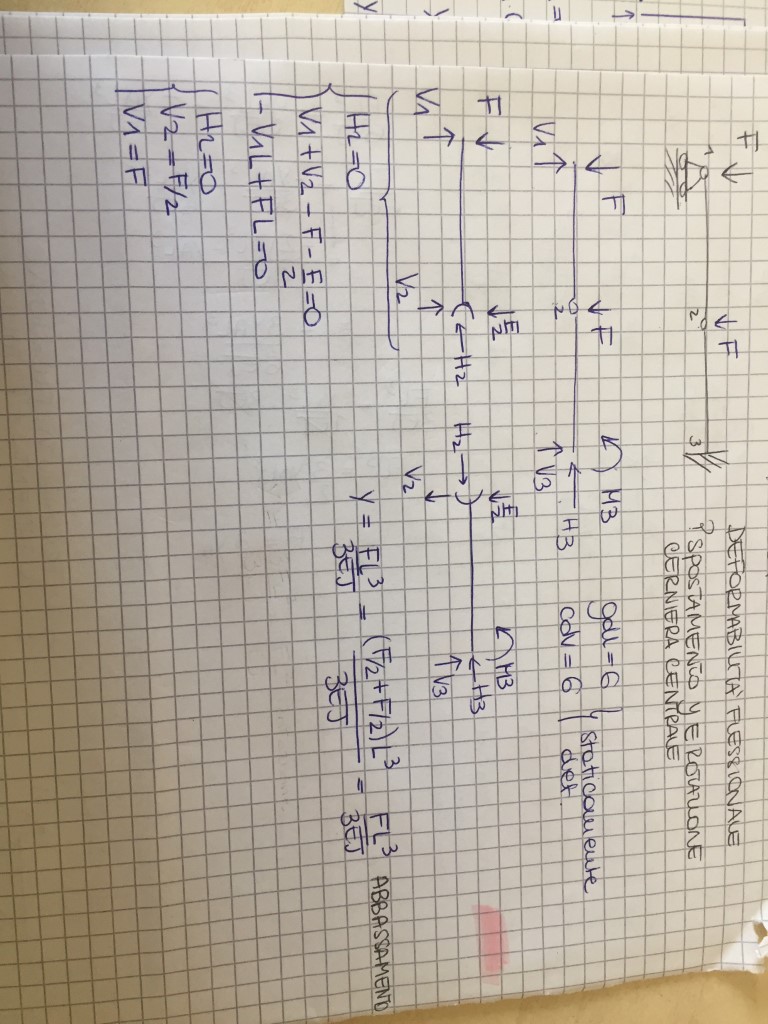 DEFORMABILITÀ FLESSIONALE
? SPOSTAMENTO Y E ROTAZIONE
CERNIERA CENTRALE
F
F
1
2
3
F
F
M3
V1
2
V3
H3
gdv = 6
cdv = 6
staticamente
det.
F
F/2
F/2
M3
V1
V2
H2
H2
V2
H3
V3
H2 = 0
V1 + V2 - F - F/2 = 0
- V1L + FL = 0
H2 = 0
V2 = F/2
V1 = F
y = FL³/3EJ = (F/2 + F/2)L³/3EJ = FL³/3EJ ABBASSAMENTO